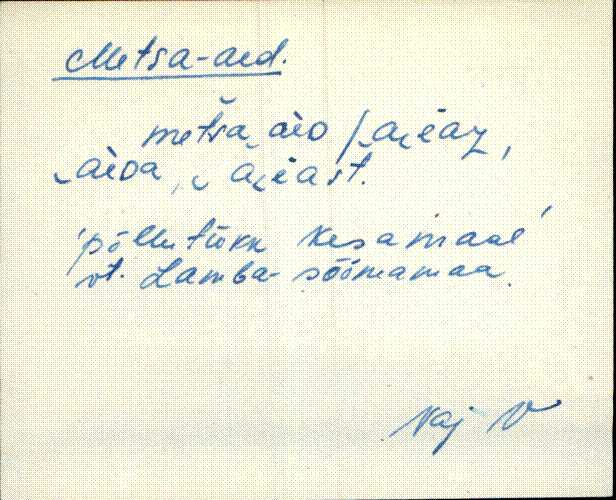 Metsa-aed.
metša‿aìᴅ /‿a̯i̯èaʒ,
‿aìᴅa, ‿a̯i̯èašt.
'põllutükk kesamaal'
vt. Lamba-söömamaa.
Naj V